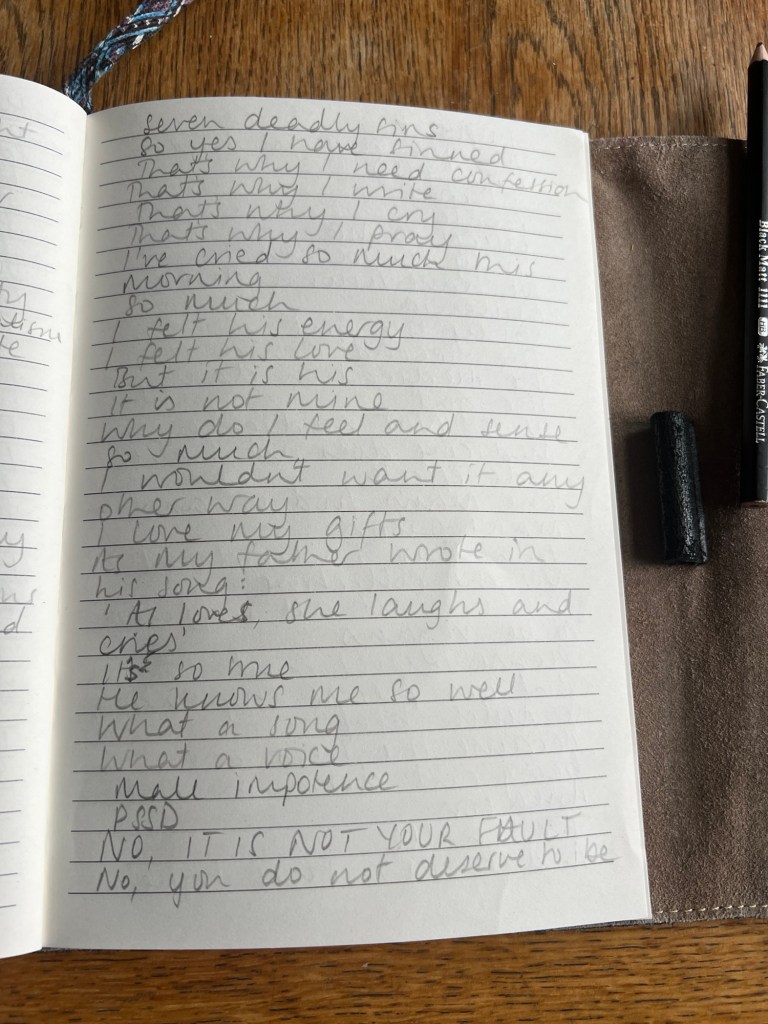 seven deadly sins
so yes I have sinned
That's why I need confession
That's why I write
That's why I cry
That's why I pray
I've cried so much this
morning
so much
I felt his energy
I felt his love
But it is his
It is not mine
why do I feel and sense
so much
I wouldn't want it any
other way
I love my gifts
As my father wrote in
his song:
'As loves, she laughs and
cries'
It's so true
He knows me so well
What a song
What a voice
Male impotence
PSSD
NO, IT IS NOT YOUR FAULT
No, you do not deserve to be
ht
ty
te
y
ns
d
Black Matt 1111
HB
FABER-CASTELL